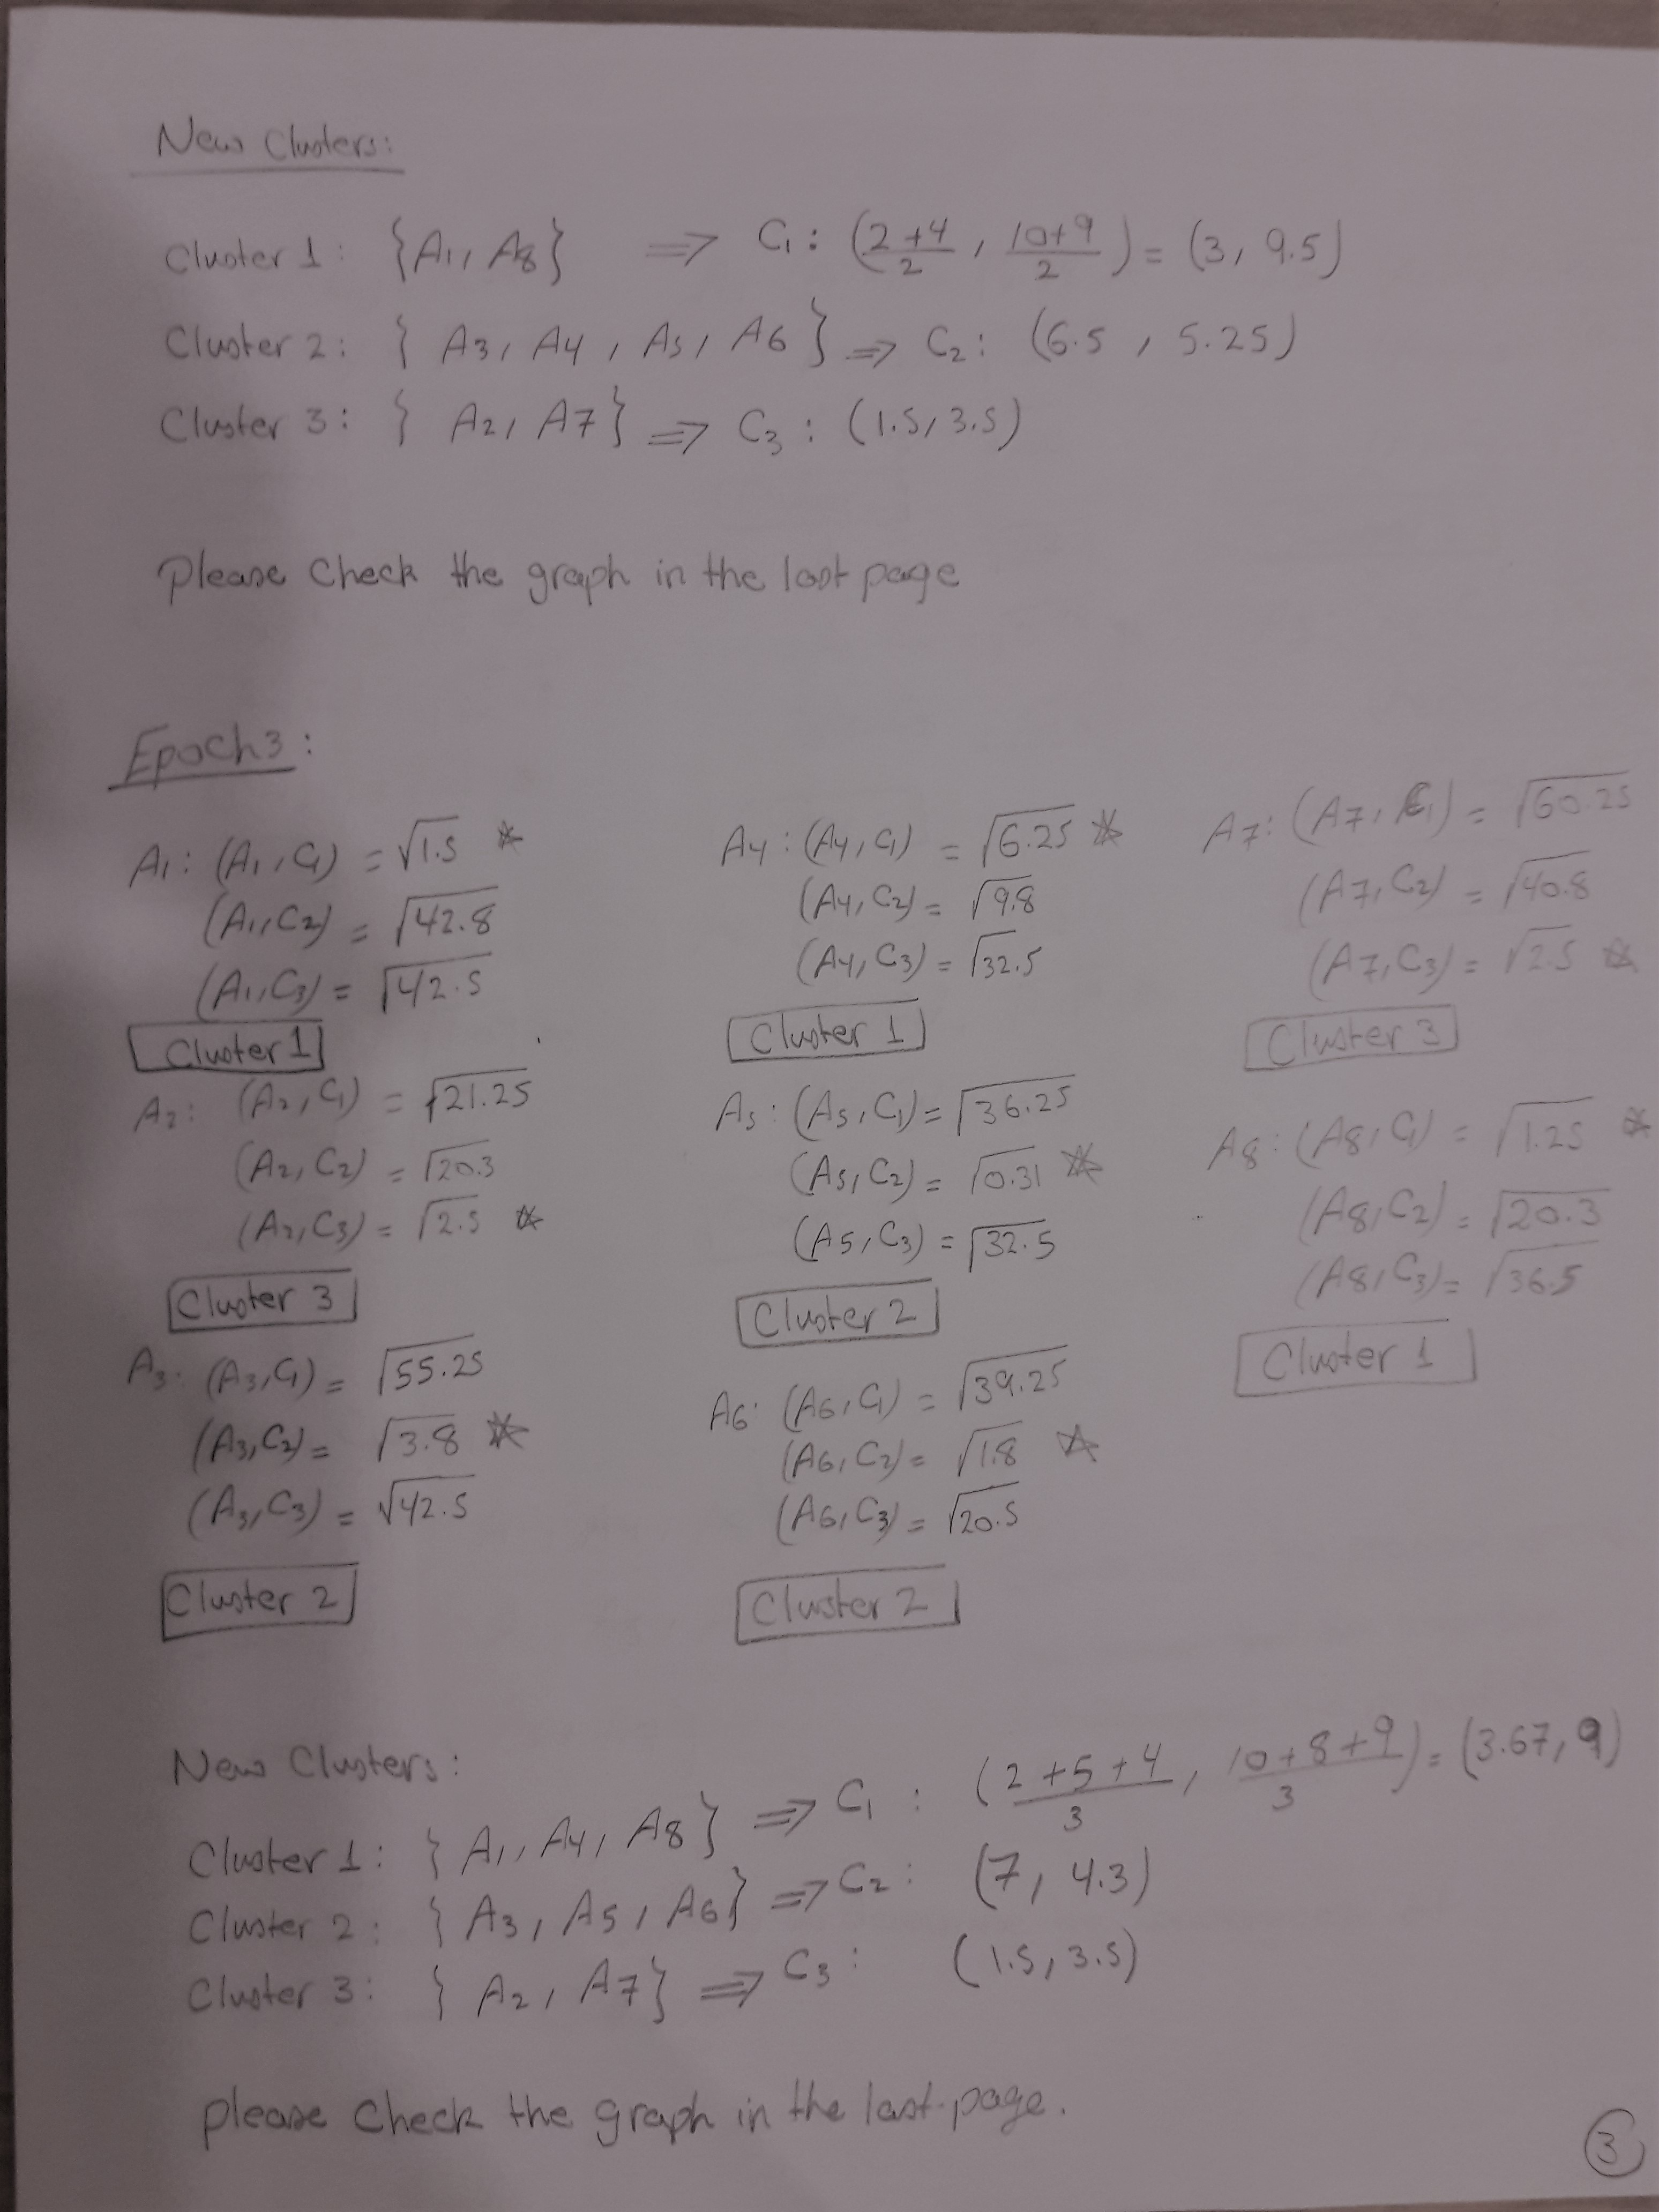 New Clusters:
Cluster 1: {A1, A8} ⇒ C1: (2+4/2, 10+9/2) = (3, 9.5)
Cluster 2: { A3, A4, A5, A6 } ⇒ C2: (6.5, 5.25)
Cluster 3: { A2, A7 } ⇒ C3: (1.5, 3.5)
Please Check the graph in the last page
Epoch3:
A1: (A1, C1) = √1.5 *
(A1, C2) = √42.8
(A1, C3) = √42.5
Cluster 1
A2: (A2, C1) = √21.25
(A2, C2) = √20.3
(A2, C3) = √2.5 *
Cluster 3
A3: (A3, C1) = √55.25
(A3, C2) = √3.8 *
(A3, C3) = √42.5
Cluster 2
A4: (A4, C1) = √6.25 *
(A4, C2) = √9.8
(A4, C3) = √32.5
Cluster 1
A5: (A5, C1) = √36.25
(A5, C2) = √0.31 *
(A5, C3) = √32.5
Cluster 2
A6: (A6, C1) = √39.25
(A6, C2) = √1.8 *
(A6, C3) = √20.5
Cluster 2
A7: (A7, C1) = √60.25
(A7, C2) = √40.8
(A7, C3) = √2.5 *
Cluster 3
A8: (A8, C1) = √1.25 *
(A8, C2) = √20.3
(A8, C3) = √36.5
Cluster 1
New Clusters:
Cluster 1: { A1, A4, A8 } ⇒ C1: (2+5+4/3, 10+8+9/3) = (3.67, 9)
Cluster 2: { A3, A5, A6 } ⇒ C2: (7, 4.3)
Cluster 3: { A2, A7 } ⇒ C3: (1.5, 3.5)
please Check the graph in the last page.
3